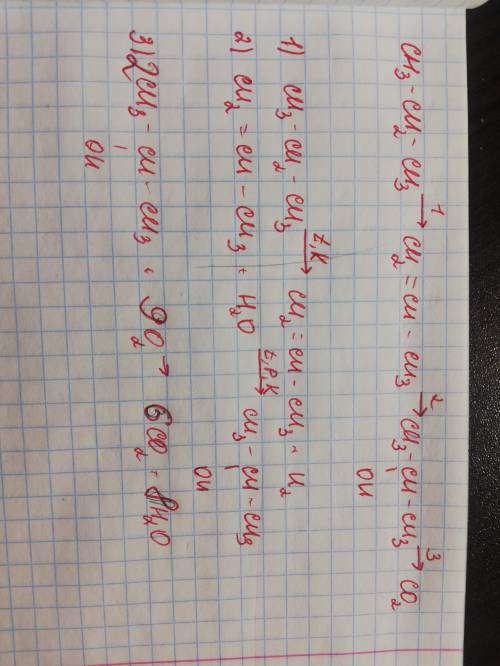 CH3 - CH2 - CH3 →1 CH2 = CH - CH3 →2 CH3 - CH - CH3 →3 CO2
OH
1) CH3 - CH2 - CH3 →t,K CH2 = CH - CH3 + H2
2) CH2 = CH - CH3 + H2O →t,P,K CH3 - CH - CH3
OH
3) 2CH3 - CH - CH3 + 9O2 → 6CO2 + 8H2O
OH